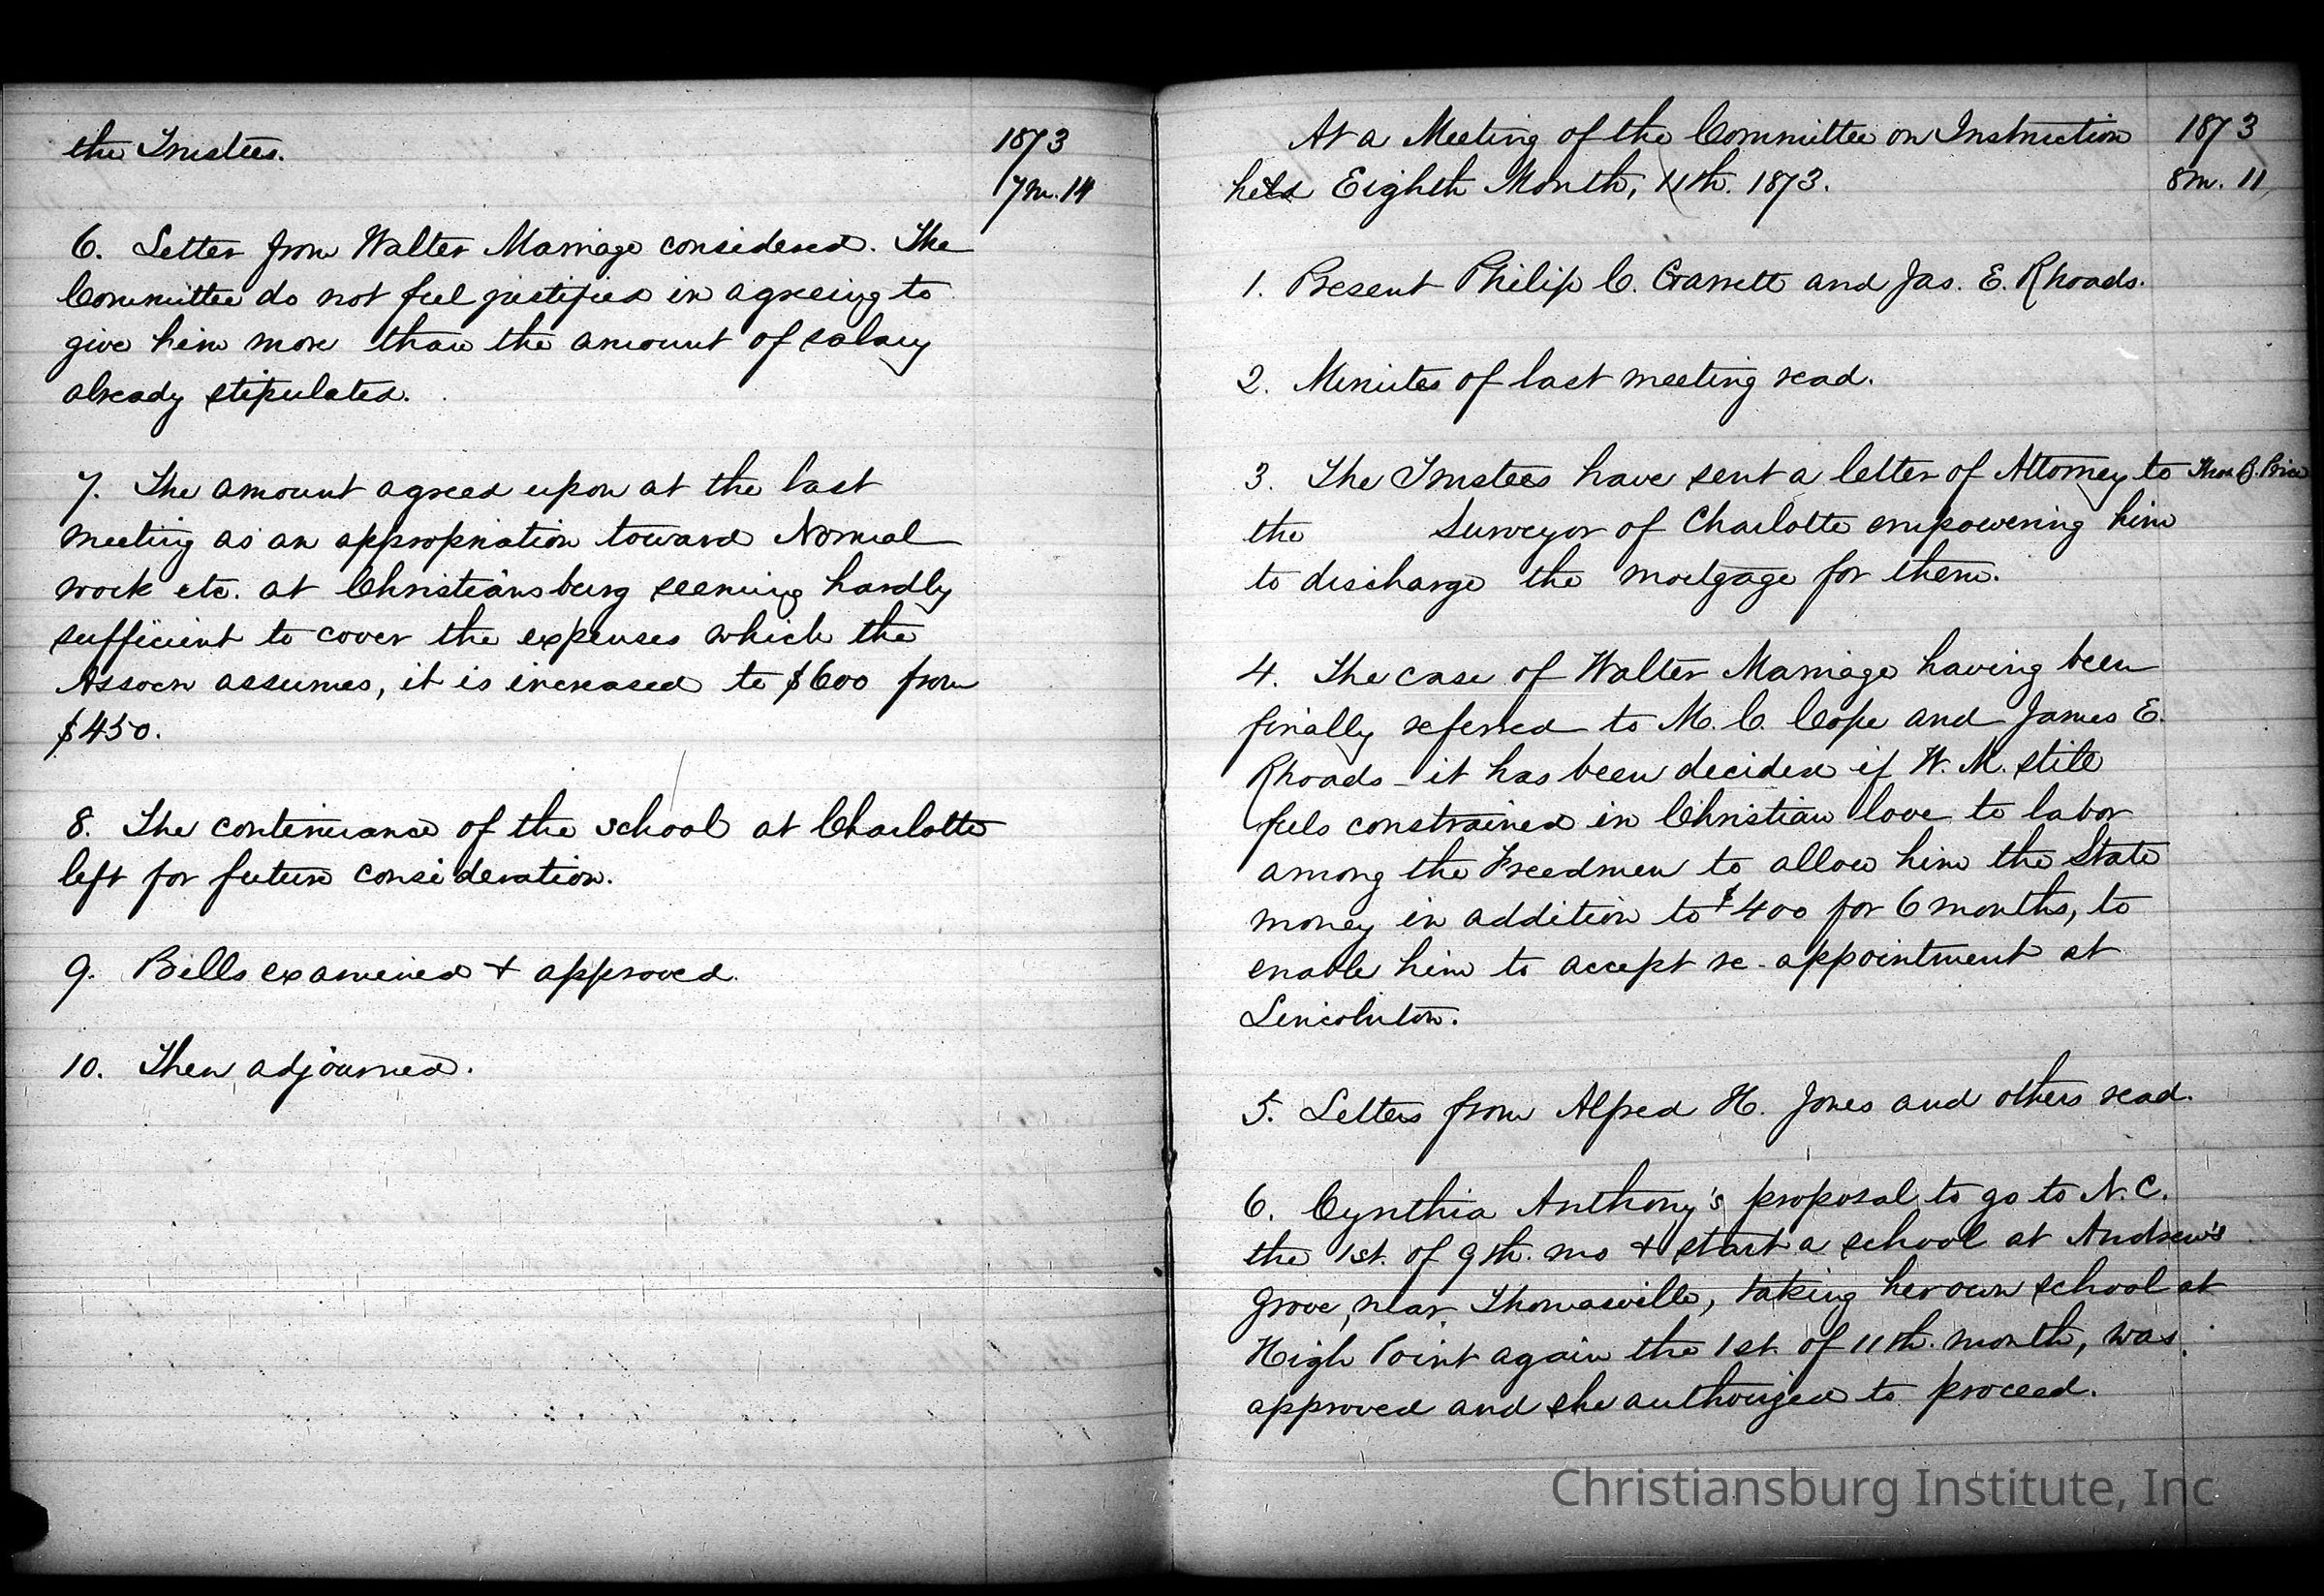 the Trustees.
1873
7m. 14
6. Letter from Walter Marriage considered. The
Committee do not feel justified in agreeing to
give him more than the amount of salary
already stipulated.
7. The amount agreed upon at the last
meeting as an appropriation toward Normal
work etc. at Christiansburg seeming hardly
sufficient to cover the expenses which the
Assocn assumes, it is increased to $600 from
$450.
8. The continuance of the school at Charlotte
left for future consideration.
9. Bills examined + approved.
10. Then adjourned.
At a Meeting of the Committee on Instruction
held Eighth Month, 11th. 1873.
1873
8m. 11
1. Present Philip C. Garrett and Jas. E. Rhoads.
2. Minutes of last meeting read.
3. The Trustees have sent a letter of Attorney to Thos B. Price
the Surveyor of Charlotte empowering him
to discharge the mortgage for them.
4. The case of Walter Marriage having been
finally referred to M. C. Cope and James E.
Rhoads - it has been decided if W. M. still
feels constrained in Christian love to labor
among the Freedmen to allow him the State
money in addition to $400 for 6 months, to
enable him to accept re-appointment at
Lincolnton.
5. Letters from Alfred H. Jones and others read.
6. Cynthia Anthony's proposal to go to N. C.
the 1st. of 9th. mo + start a school at Andrew's
Grove, near Thomasville, taking her own school at
High Point again the 1st. of 11th. month, was
approved and she authorized to proceed.
Christiansburg Institute, Inc